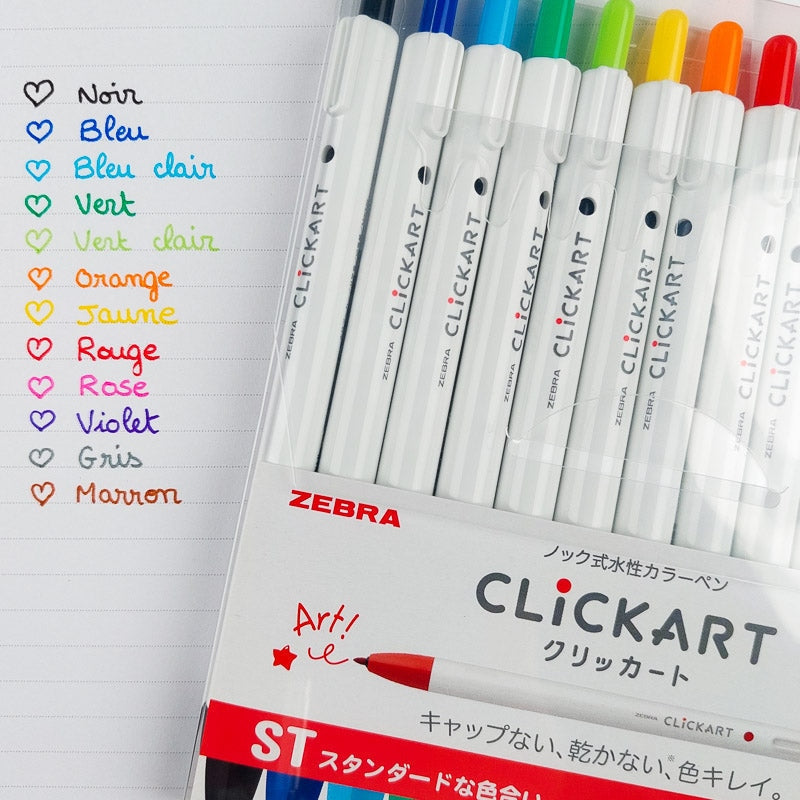 Noir
Bleu
Bleu clair
Vert
Vert clair
Orange
Jaune
Rouge
Rose
Violet
Gris
Marron
ZEBRA CLiCKART
ZEBRA CLiCKART
ZEBRA CLiCKART
ZEBRA CLiCKART
ZEBRA CLiCKART
ZEBRA CLiCKART
ZEBRA CLiCKART
ZEBRA CLiCKART
ZEBRA CLiCKART
ZEBRA
ノック式水性カラーペン
CLiCKART
クリッカート
Art!
ZEBRA CLiCKART
キャップない、乾かない、※色キレイ。
ST スタンダードな色合い